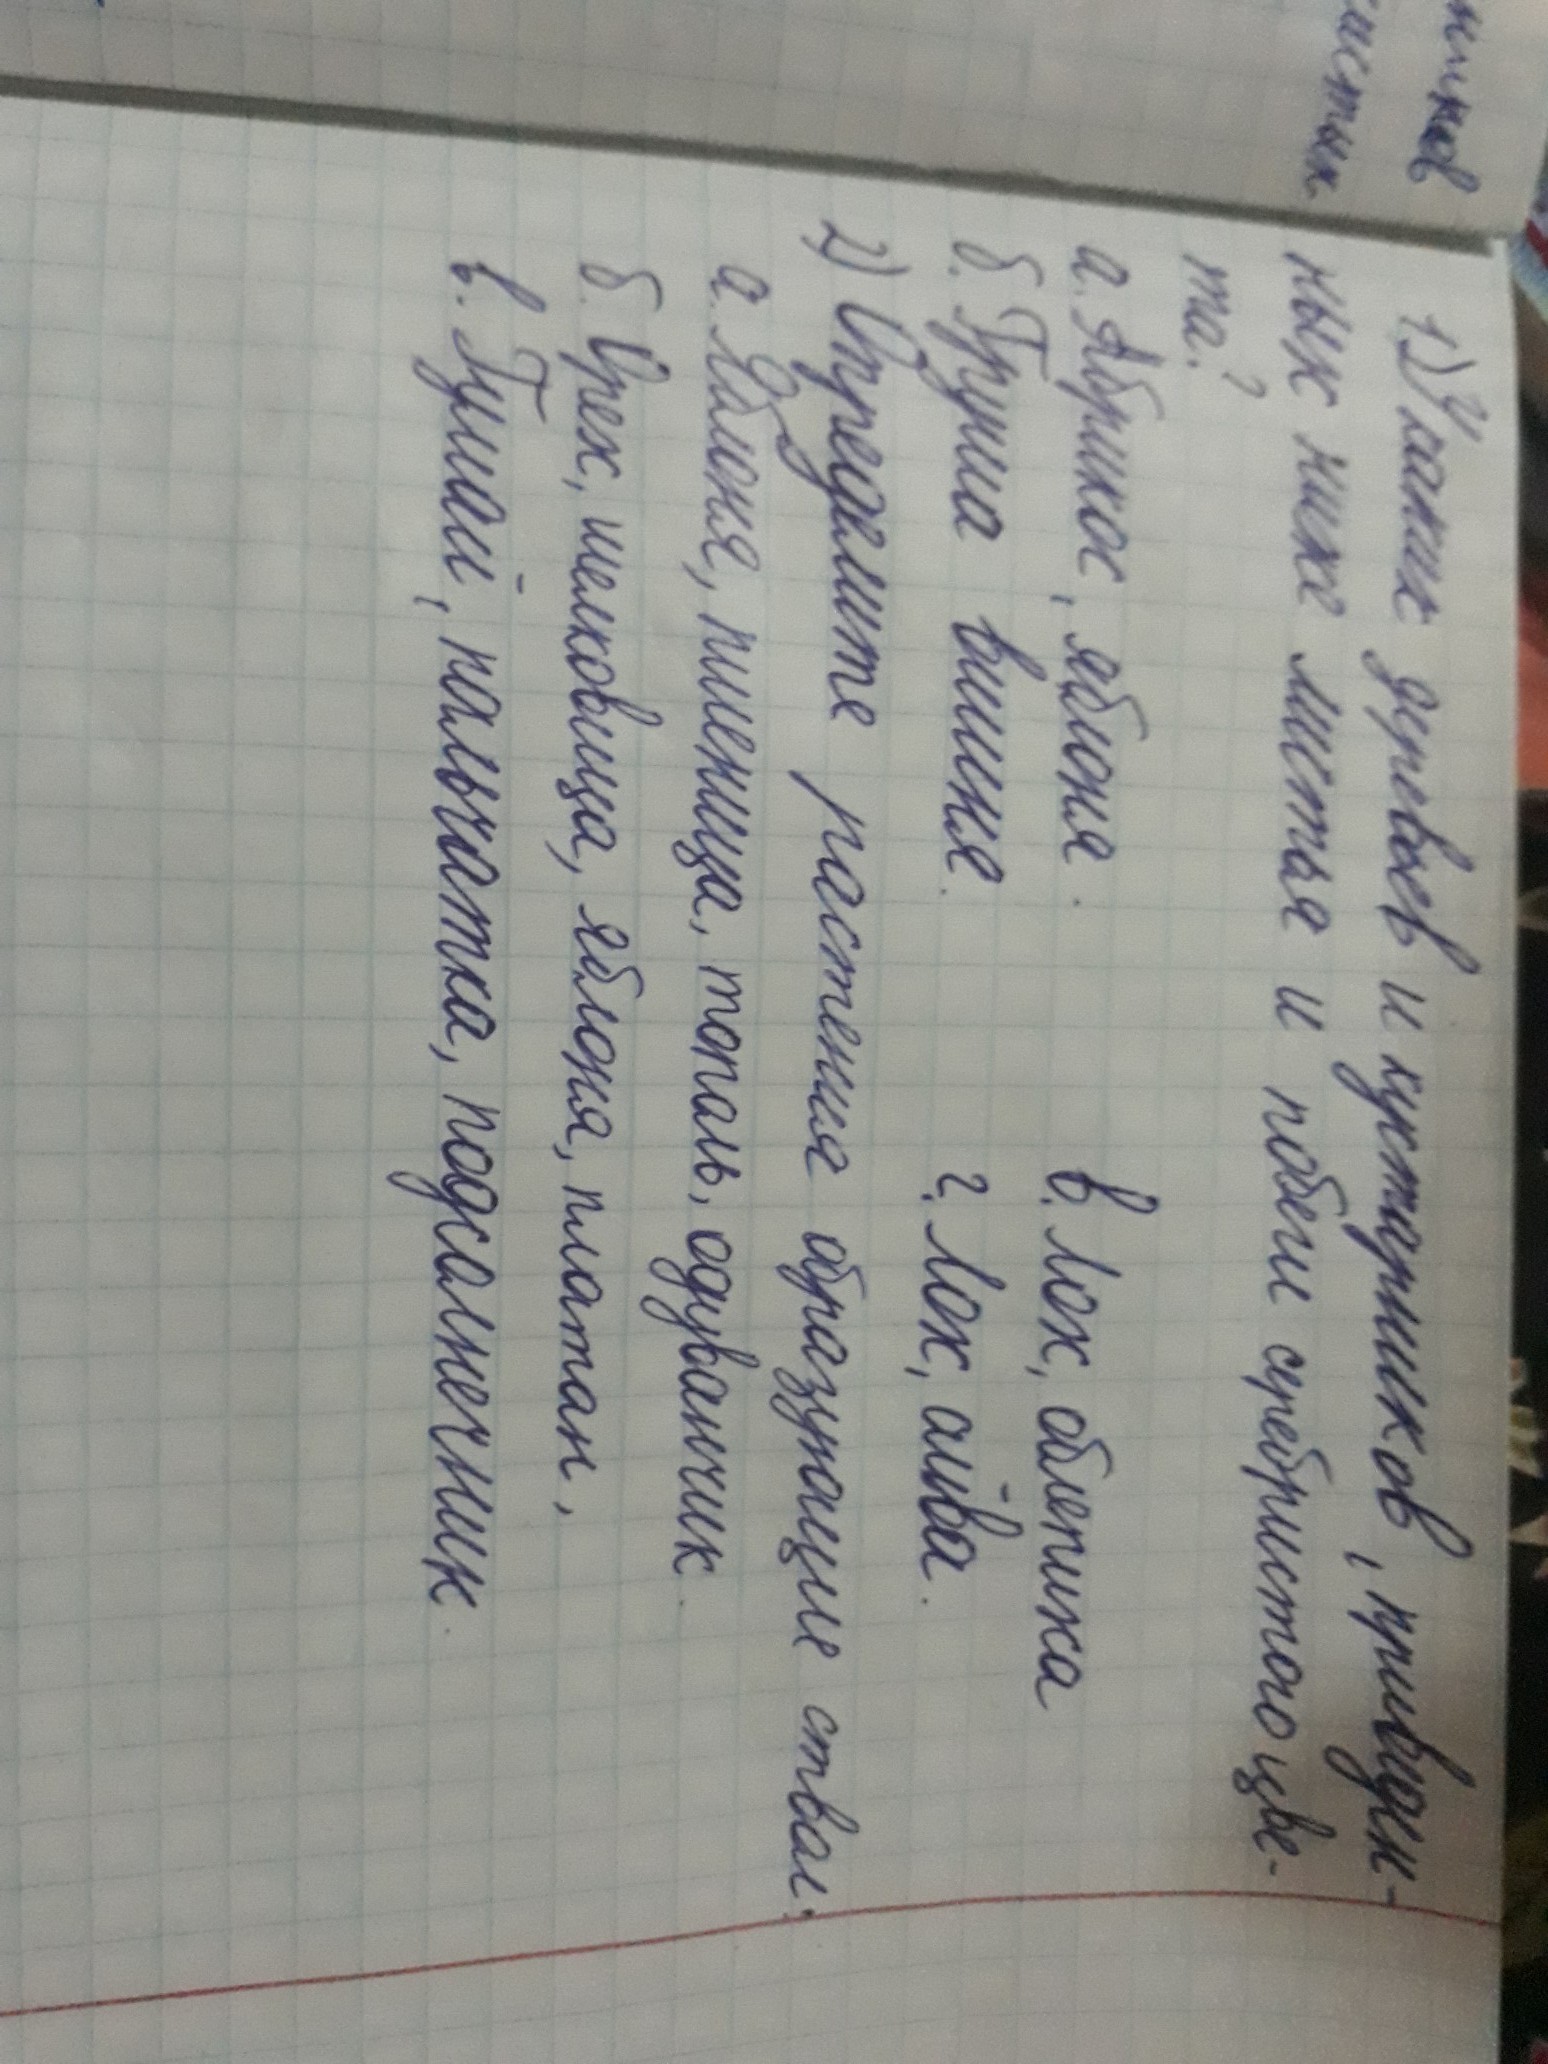 нников
истых
1) У каких деревьев и кустарников, приведён-
ных ниже листья и побеги серебристого цве-
та?
а. Абрикос, яблоня.
в. Лох, облепиха
б. Груша вишня.
г. Лох, айва.
2) Определите растения образующие ствол:
а. Яблоня, пшеница, тополь, одуванчик.
б. Орех, шелковица, яблоня, платан,
в. Гумай, пальчатка, подсолнечник.